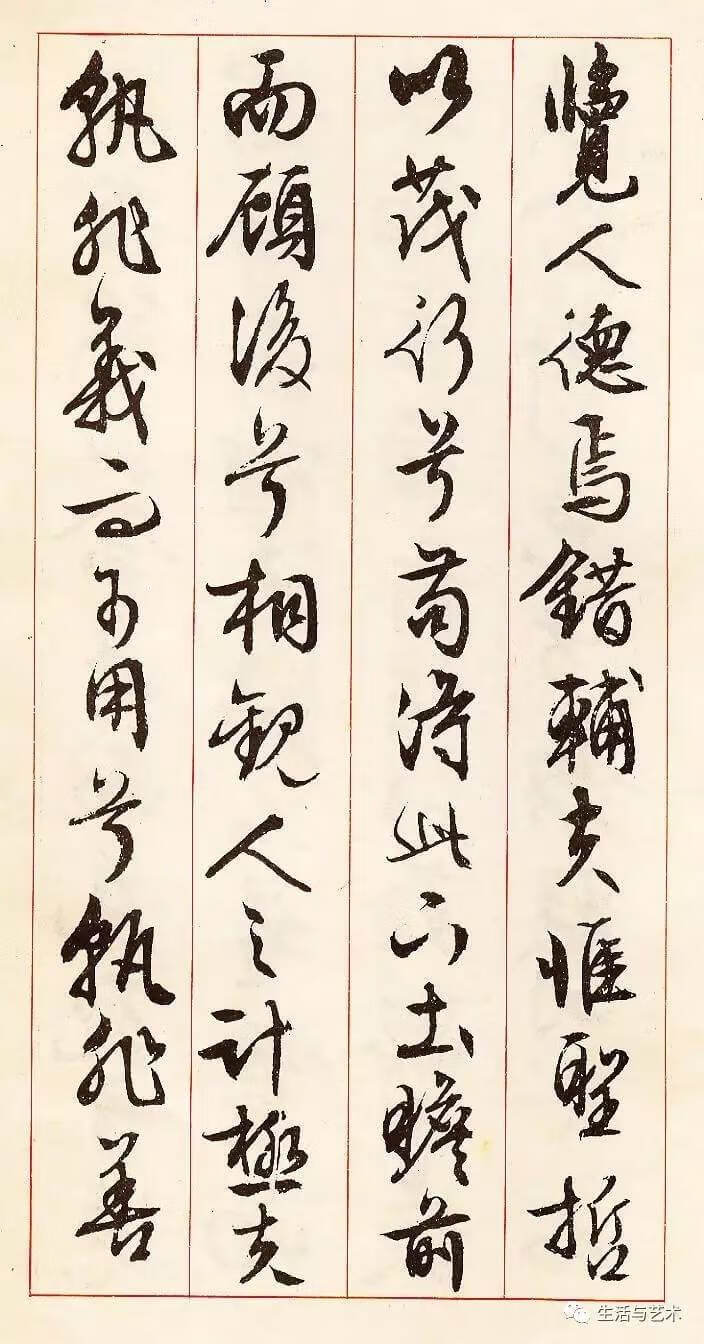 覽人德焉錯輔夫惟聖哲
以茂行兮苟得此下土瞻前
而顧後兮相觀人之計極夫
孰非義而可用兮孰非善
生活与艺术